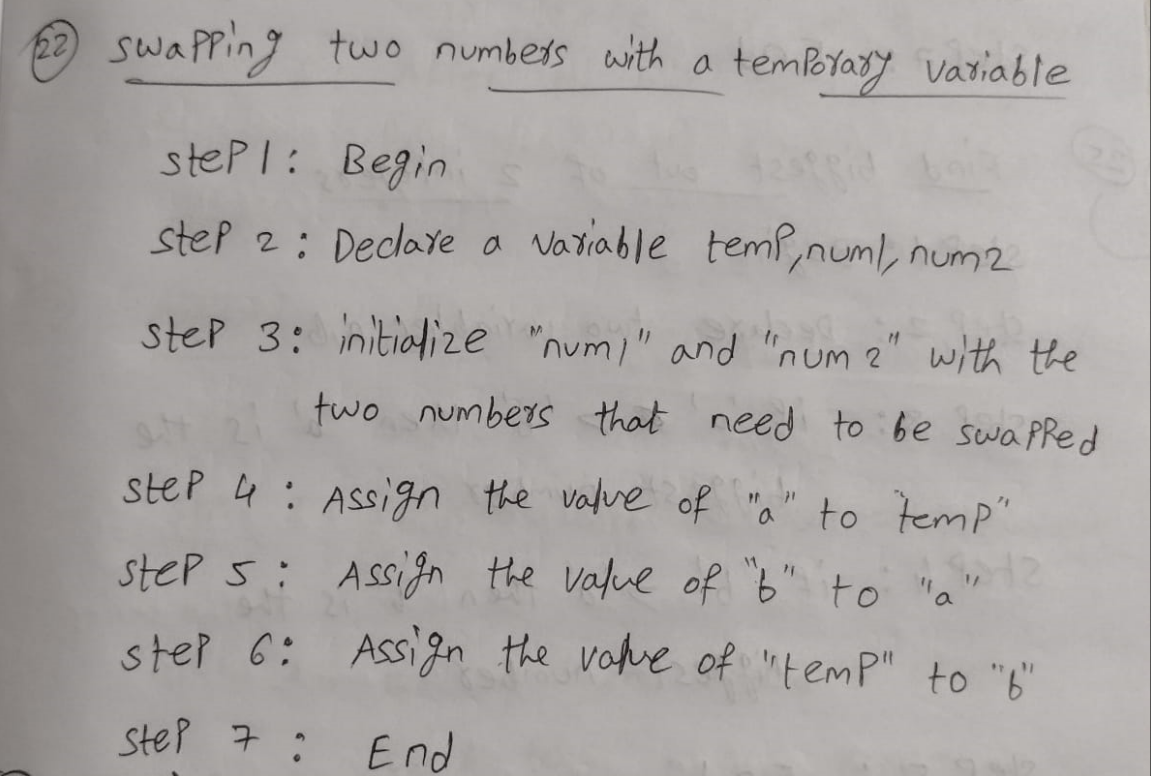 22 swapping two numbers with a temporary variable
step 1: Begin
step 2: Declare a variable temp, num1, num2
step 3: initialize "num1" and "num2" with the
two numbers that need to be swapped
step 4: Assign the value of "a" to "temp"
step 5: Assign the value of "b" to "a"
step 6: Assign the value of "temp" to "b"
step 7: End